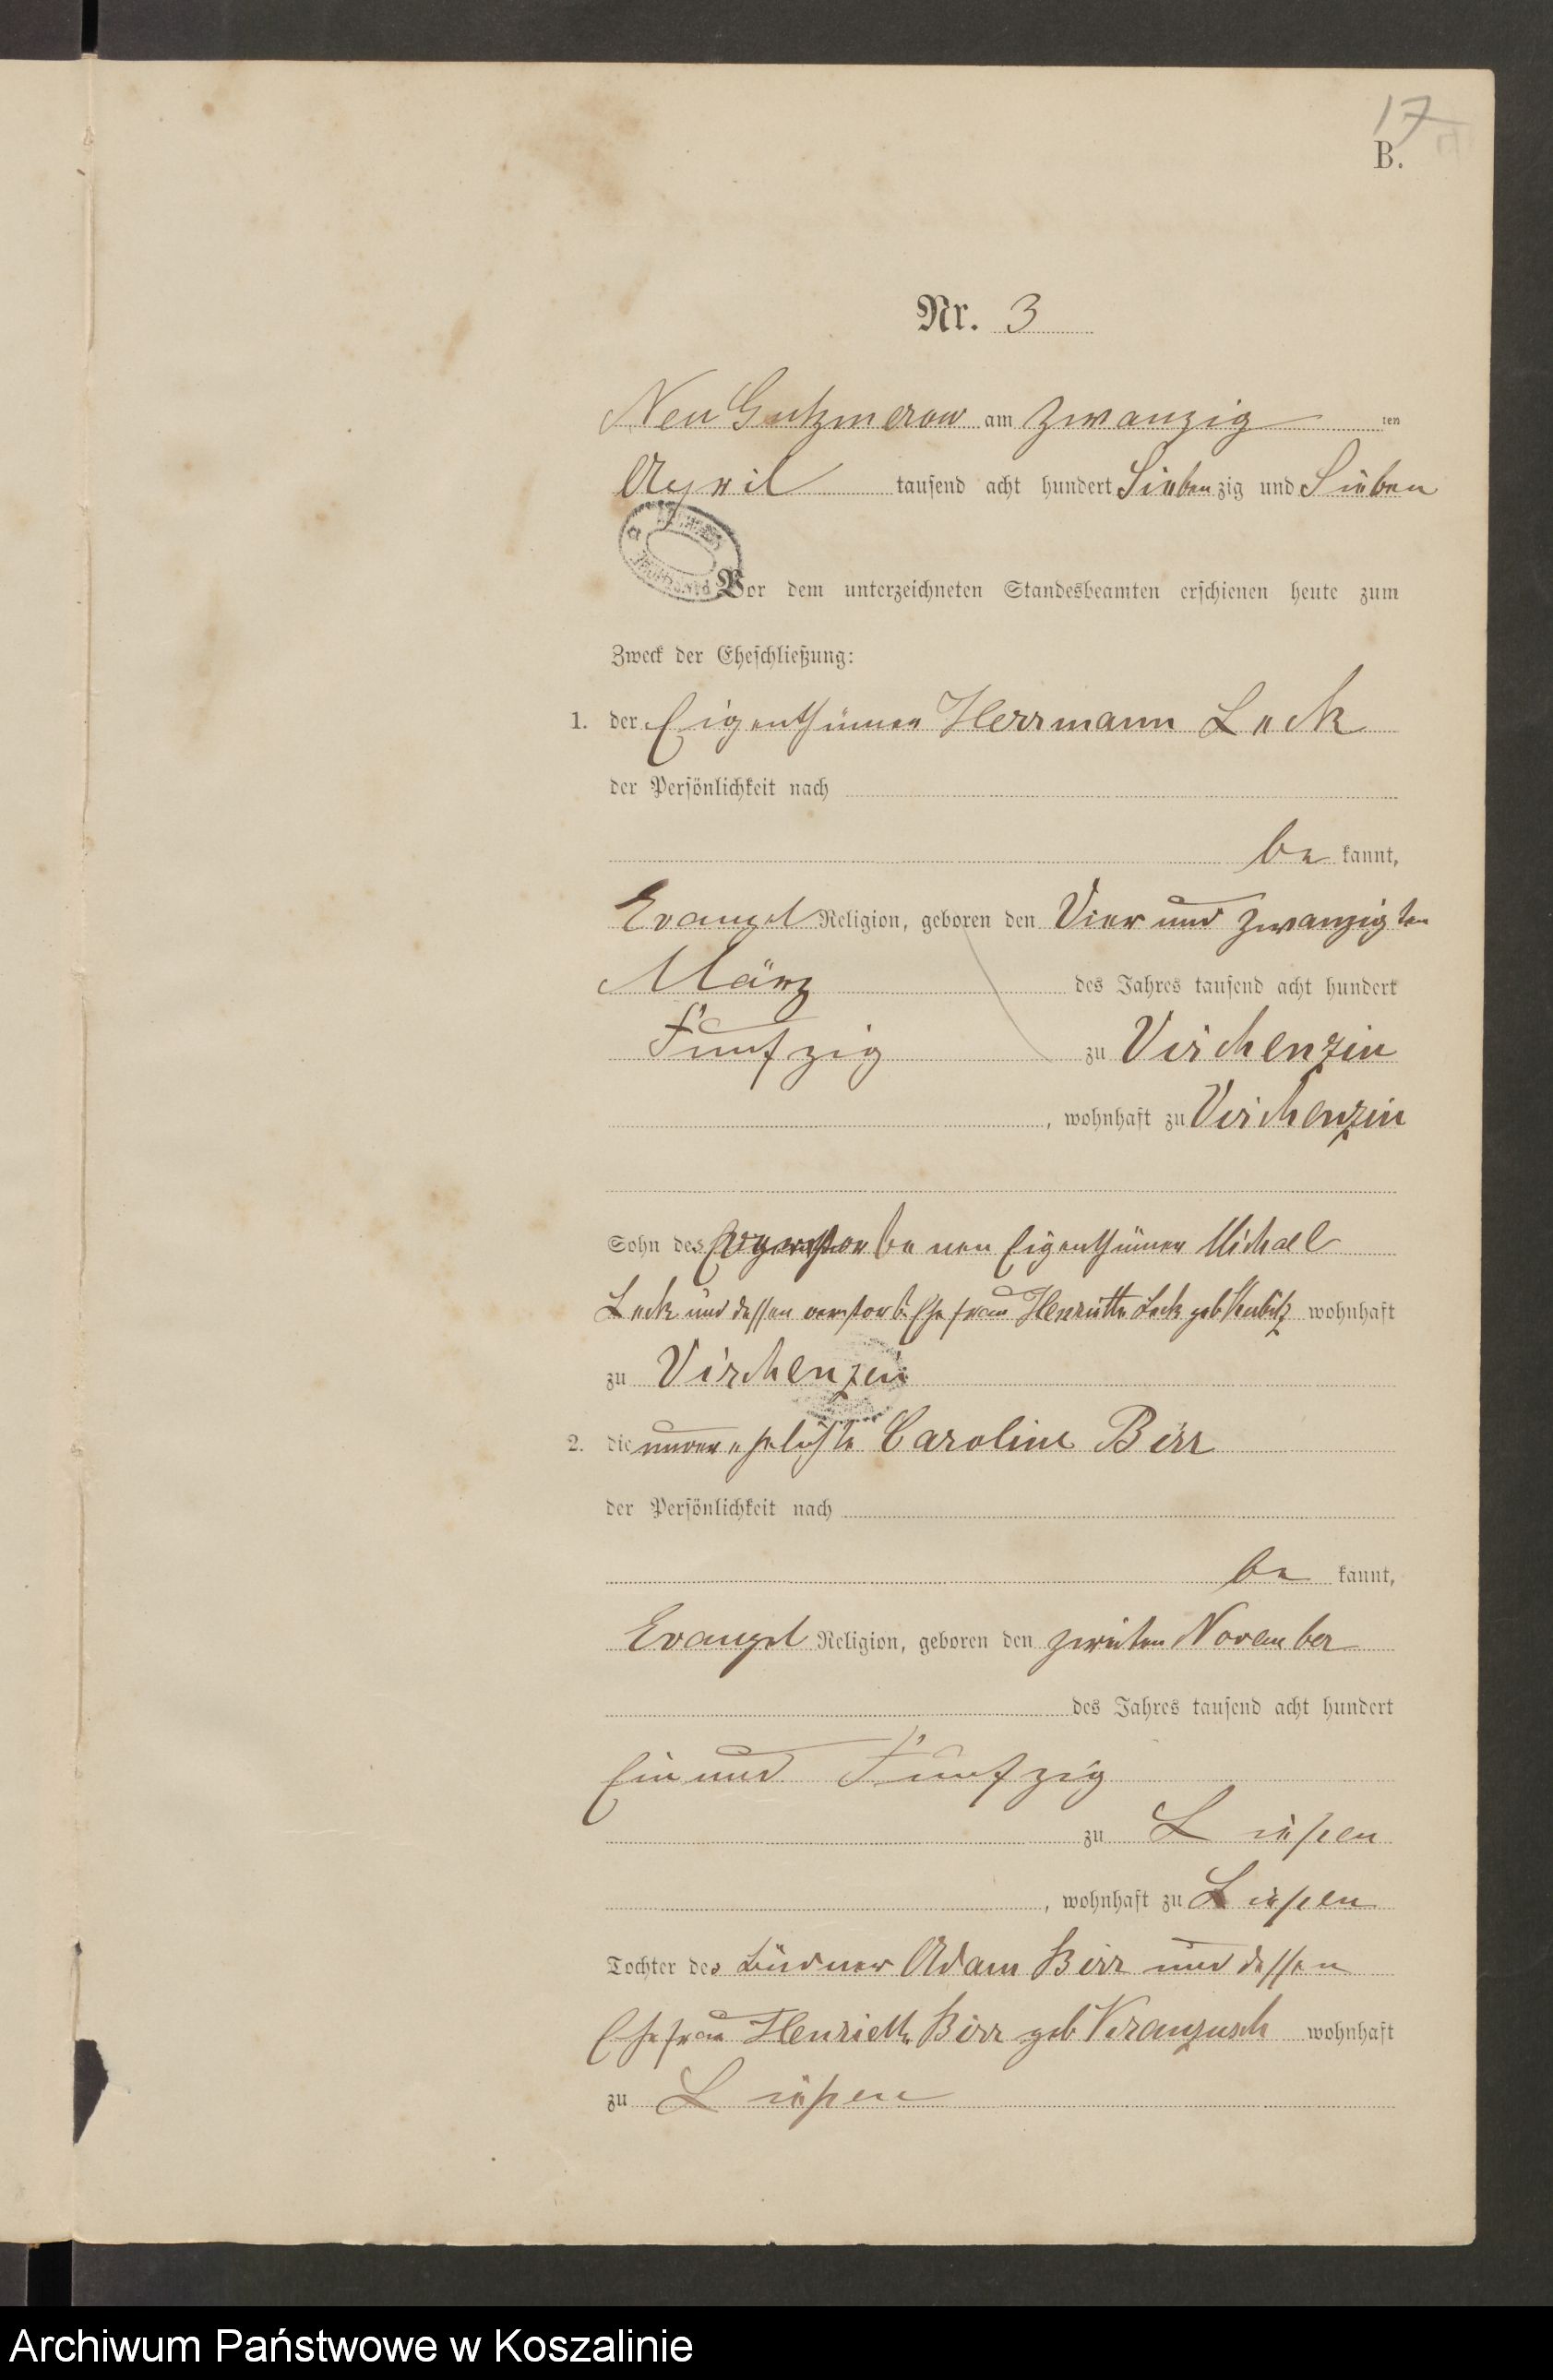 17
B.
Nr. 3
Neu Gutzmerow am Zwanzig ten
April tausend acht hundert Siebenzig und Sieben
Vor dem unterzeichneten Standesbeamten erschienen heute zum
Zweck der Eheschließung:
1. der Eigenthümer Herrmann Leck
der Persönlichkeit nach
be kannt,
Evangel Religion, geboren den Vier und zwanzigten
März des Jahres tausend acht hundert
Funfzig zu Virchenzin
, wohnhaft zu Virchenzin
Sohn des verstorbenen Eigenthümer Michael
Leck und dessen verstorb. Ehefrau Henriette Leck geb wohnhaft
zu Virchenzin
2. die unverehelichte Caroline Birr
der Persönlichkeit nach
be kannt,
Evangel Religion, geboren den zweiten November
des Jahres tausend acht hundert
Ein und Funfzig
zu Liepen
, wohnhaft zu Liepen
Tochter des Büdner Adam Birr und dessen
Ehefrau Henriette Birr geb wohnhaft
zu Liepen
Archiwum Państwowe w Koszalinie